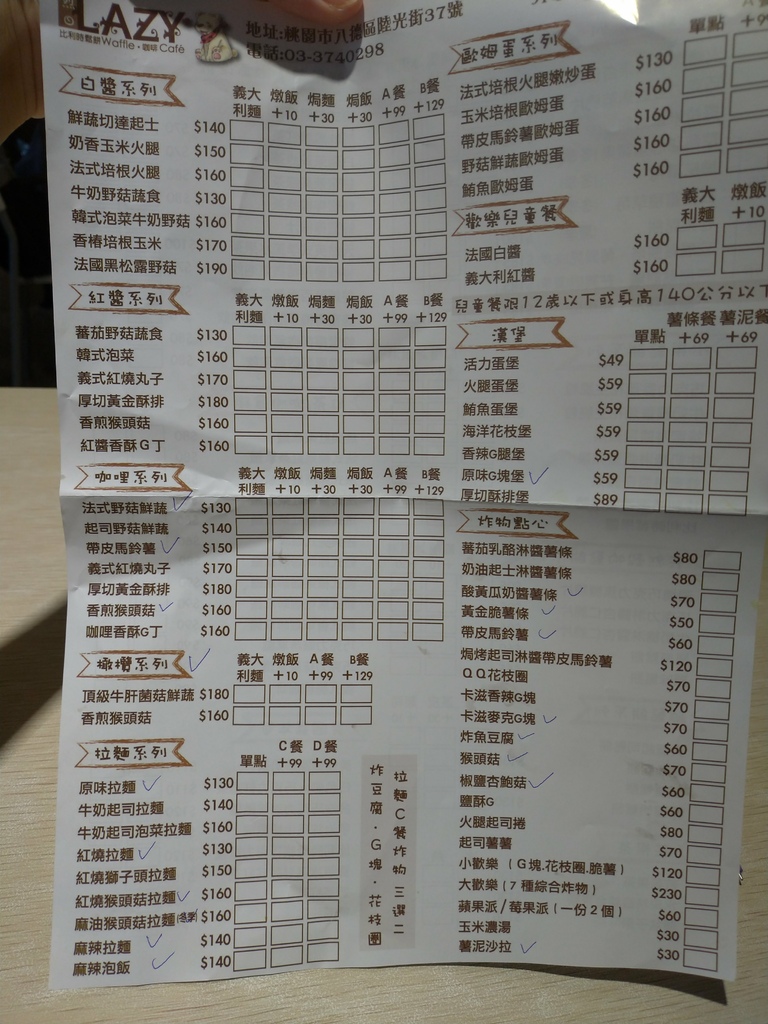 LAZY
比利時鬆餅 Waffle・咖啡 Café
地址:桃園市八德區陸光街37號
電話:03-3740298
白醬系列
義大利麵 燉飯+10 焗麵+30 焗飯+30 A餐+99 B餐+129
鮮蔬切達起士 $140
奶香玉米火腿 $150
法式培根火腿 $160
牛奶野菇蔬食 $130
韓式泡菜牛奶野菇 $160
香椿培根玉米 $170
法國黑松露野菇 $190
紅醬系列
義大利麵 燉飯+10 焗麵+30 焗飯+30 A餐+99 B餐+129
蕃茄野菇蔬食 $130
韓式泡菜 $160
義式紅燒丸子 $170
厚切黃金酥排 $180
香煎猴頭菇 $160
紅醬香酥G丁 $160
咖哩系列
義大利麵 燉飯+10 焗麵+30 焗飯+30 A餐+99 B餐+129
法式野菇鮮蔬 $130
起司野菇鮮蔬 $140
帶皮馬鈴薯 $150
義式紅燒丸子 $170
厚切黃金酥排 $180
香煎猴頭菇 $160
咖哩香酥G丁 $160
橄欖系列
義大利麵 燉飯+10 A餐+99 B餐+129
頂級牛肝菌菇鮮蔬 $180
香煎猴頭菇 $160
拉麵系列
單點 C餐+99 D餐+99
原味拉麵 $130
牛奶起司拉麵 $140
牛奶起司泡菜拉麵 $160
紅燒拉麵 $130
紅燒獅子頭拉麵 $150
紅燒猴頭菇拉麵 $160
麻油猴頭菇拉麵 $160
麻辣拉麵 $140
麻辣泡飯 $140
拉麵C餐炸物三選二
炸豆腐・G塊・花枝圈
歐姆蛋系列
單點
法式培根火腿嫩炒蛋 $130
玉米培根歐姆蛋 $160
帶皮馬鈴薯歐姆蛋 $160
野菇鮮蔬歐姆蛋 $160
鮪魚歐姆蛋 $160
歡樂兒童餐
義大利麵 燉飯+10
法國白醬 $160
義大利紅醬 $160
兒童餐限12歲以下或身高140公分以下
漢堡
單點 薯條餐+69 薯泥餐+69
活力蛋堡 $49
火腿蛋堡 $59
鮪魚蛋堡 $59
海洋花枝堡 $59
香辣G腿堡 $59
原味G塊堡 $59
厚切酥排堡 $89
炸物點心
蕃茄乳酪淋醬薯條 $80
奶油起士淋醬薯條 $80
酸黃瓜奶醬薯條 $70
黃金脆薯條 $50
帶皮馬鈴薯 $60
焗烤起司淋醬帶皮馬鈴薯 $120
QQ花枝圈 $70
卡滋香辣G塊 $70
卡滋麥克G塊 $70
炸魚豆腐 $60
猴頭菇 $70
椒鹽杏鮑菇 $60
鹽酥G $60
火腿起司捲 $80
起司薯薯 $70
小歡樂（G塊.花枝圈.脆薯） $120
大歡樂（7種綜合炸物） $230
蘋果派/莓果派（一份2個） $60
玉米濃湯 $30
薯泥沙拉 $30